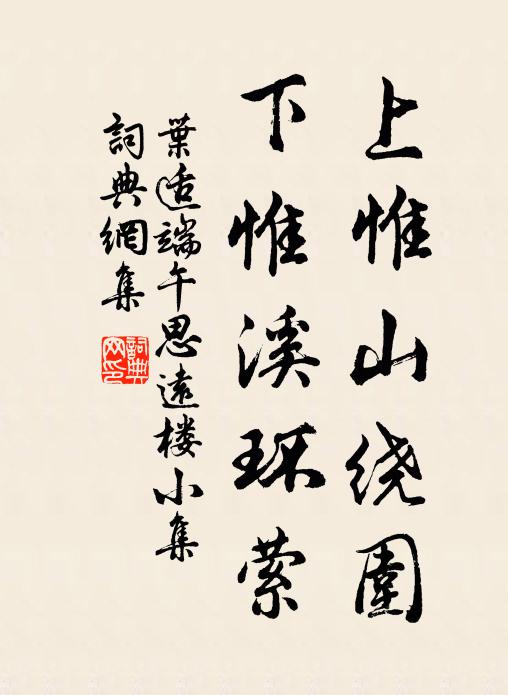 上惟山绕圍
下惟溪环萦
葉适端午思遠楼小集
詞典網集
詞典网印